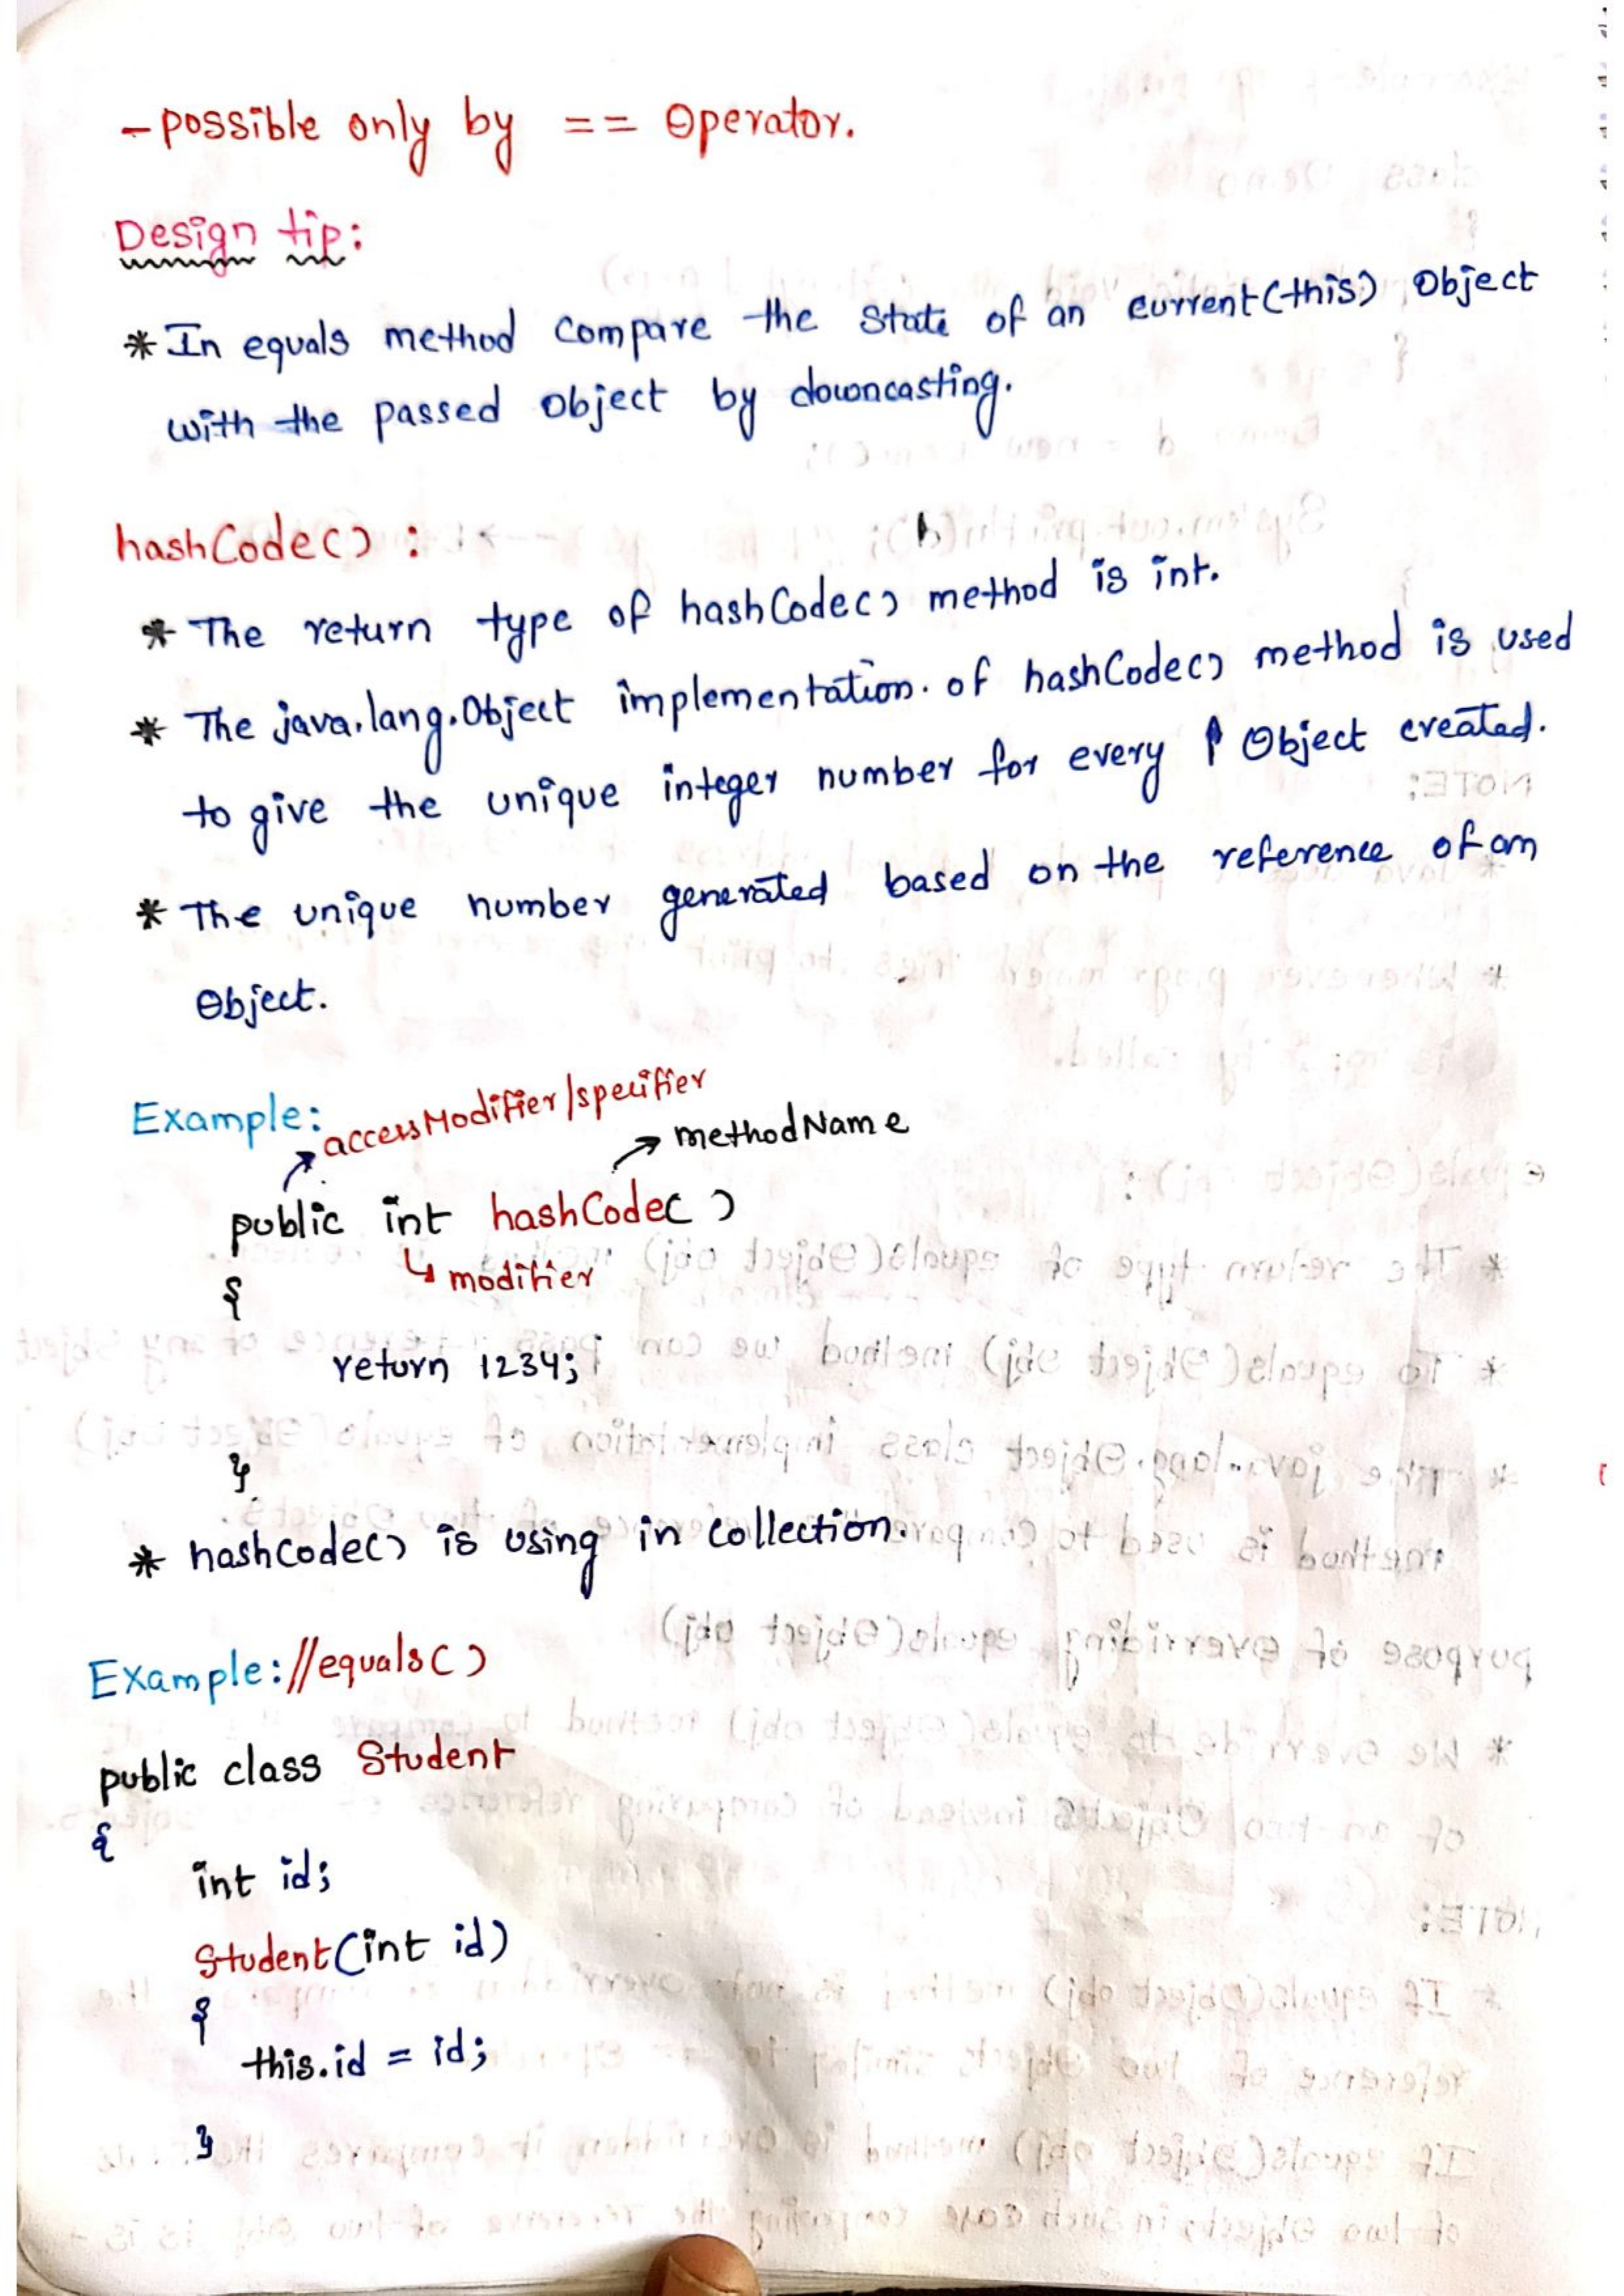 - possible only by == Operator.
Design tip:
* In equals method compare the state of an current(this) Object
with the passed object by downcasting.
hashCode() :
* The return type of hashCode() method is int.
* The java.lang.Object implementation. of hashCode() method is used
to give the unique integer number for every Object created.
* The unique number generated based on the reference of an
Object.
Example:
accessModifier/specifier
methodName
public int hashCode( )
modifier
{
return 1234;
}
* hashcode() is using in collection.
Example: //equals( )
public class Student
{
int id;
Student(int id)
{
this.id = id;
}